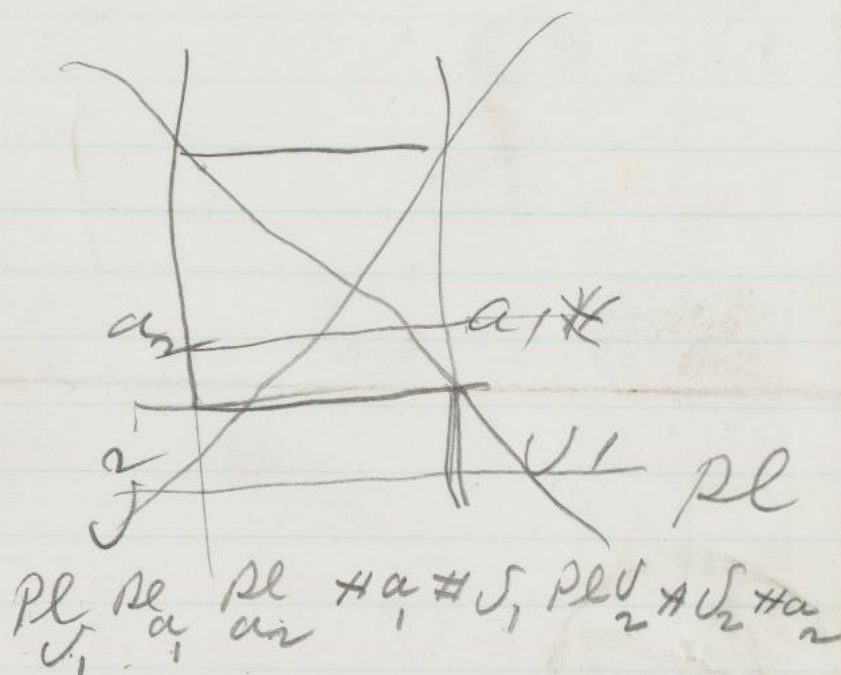 a2 a1 #
U2 U1
Pl
PlU1 Pla1 Pla2 #a1 #U1 PlU2 #U2 #a2